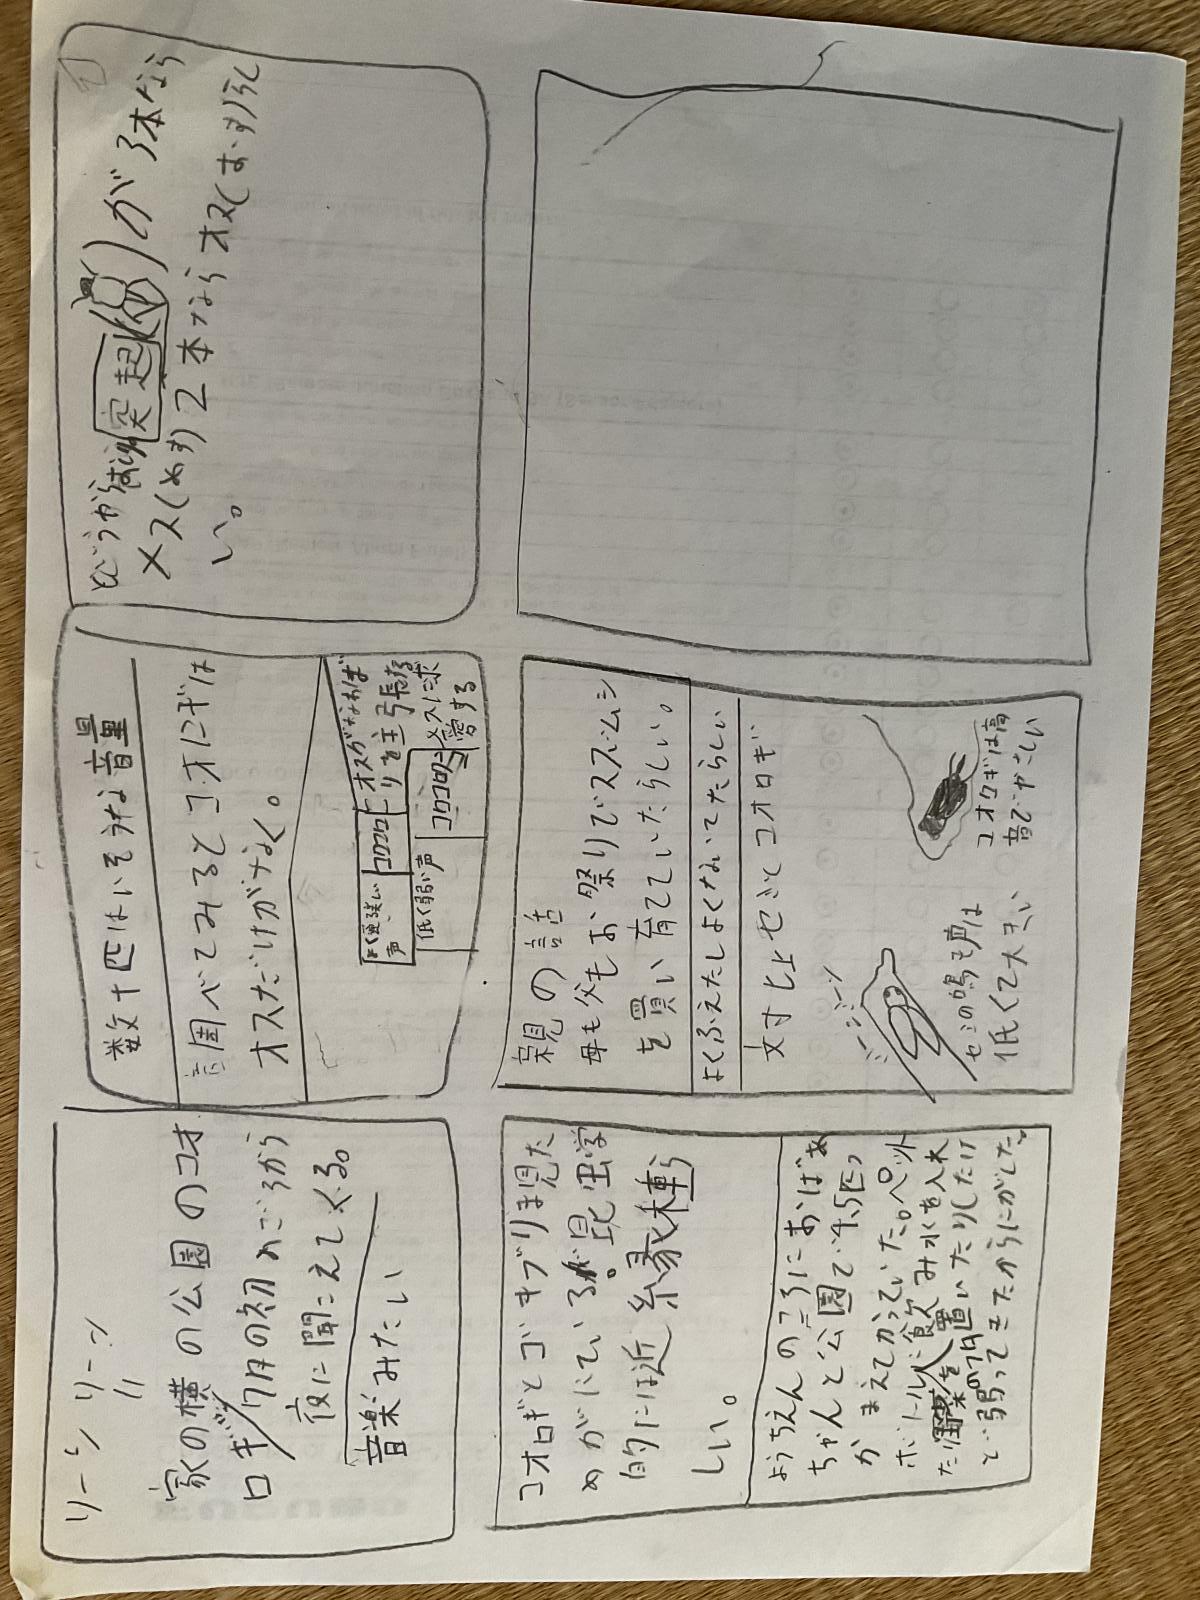 リーン リーン
家の横の公園のコオ
ロギ/7月の初めごろから
夜に聞こえてくる。
音楽みたい
数十匹はいそうな音量
調べてみるとコオロギは
オスだけがなく。
よく強い声
コロコロ
オスがなわば
りを主張する
低く弱い声
コロコロ
メスに求
愛する
どうやら
突起
が3本なら
メス(めす)2本ならオス(おす)らし
い。
コオロギとゴキブリは見た
めがにているが。昆虫学
的には近縁種らしい。
ようちえんのころにおばあ
ちゃんと公園で4、5匹つ
かまえてかっていた。ペット
ボトルに飲み水を入れ
た
を置いたりしたけ
ど弱ってきたからにがした。
親の話
母も父もお祭りでスズムシ
を買い育てていたらしい。
よくふえたしよくないてたらしい
対比 セミとコオロギ
ミーンミーン
セミの鳴き声は
低くて大きい
コオロギは高
音で小さい